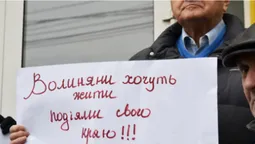 Волиняни хочуть
жити
подіями свого
краю!!!